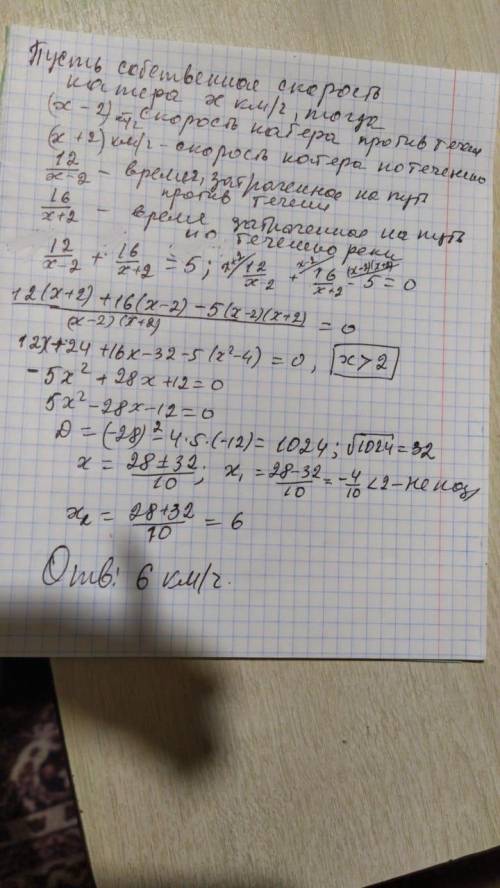 Пусть собственная скорость
катера x км/ч, тогда
(x-2) км/ч скорость катера против течен
(x+2) км/ч - скорость катера по течению
12/(x-2) - время, затраченное на путь
против течени
16/(x+2) - время затраченное на путь
по течению реки
12/(x-2) + 16/(x+2) = 5; x+2/ 12/(x-2) + x-2/ 16/(x+2) - (x-2)(x+2)/ 5 = 0
(12(x+2)+16(x-2)-5(x-2)(x+2))/((x-2)(x+2)) = 0
12x+24+16x-32-5(x²-4)=0, x>2
-5x²+28x+12=0
5x²-28x-12=0
D=(-28)²-4·5·(-12)=1024; √1024=32
x = (28±32)/10; x₁ = (28-32)/10 = -4/10 <2 - не под
x₂ = (28+32)/10 = 6
Отв: 6 км/ч.